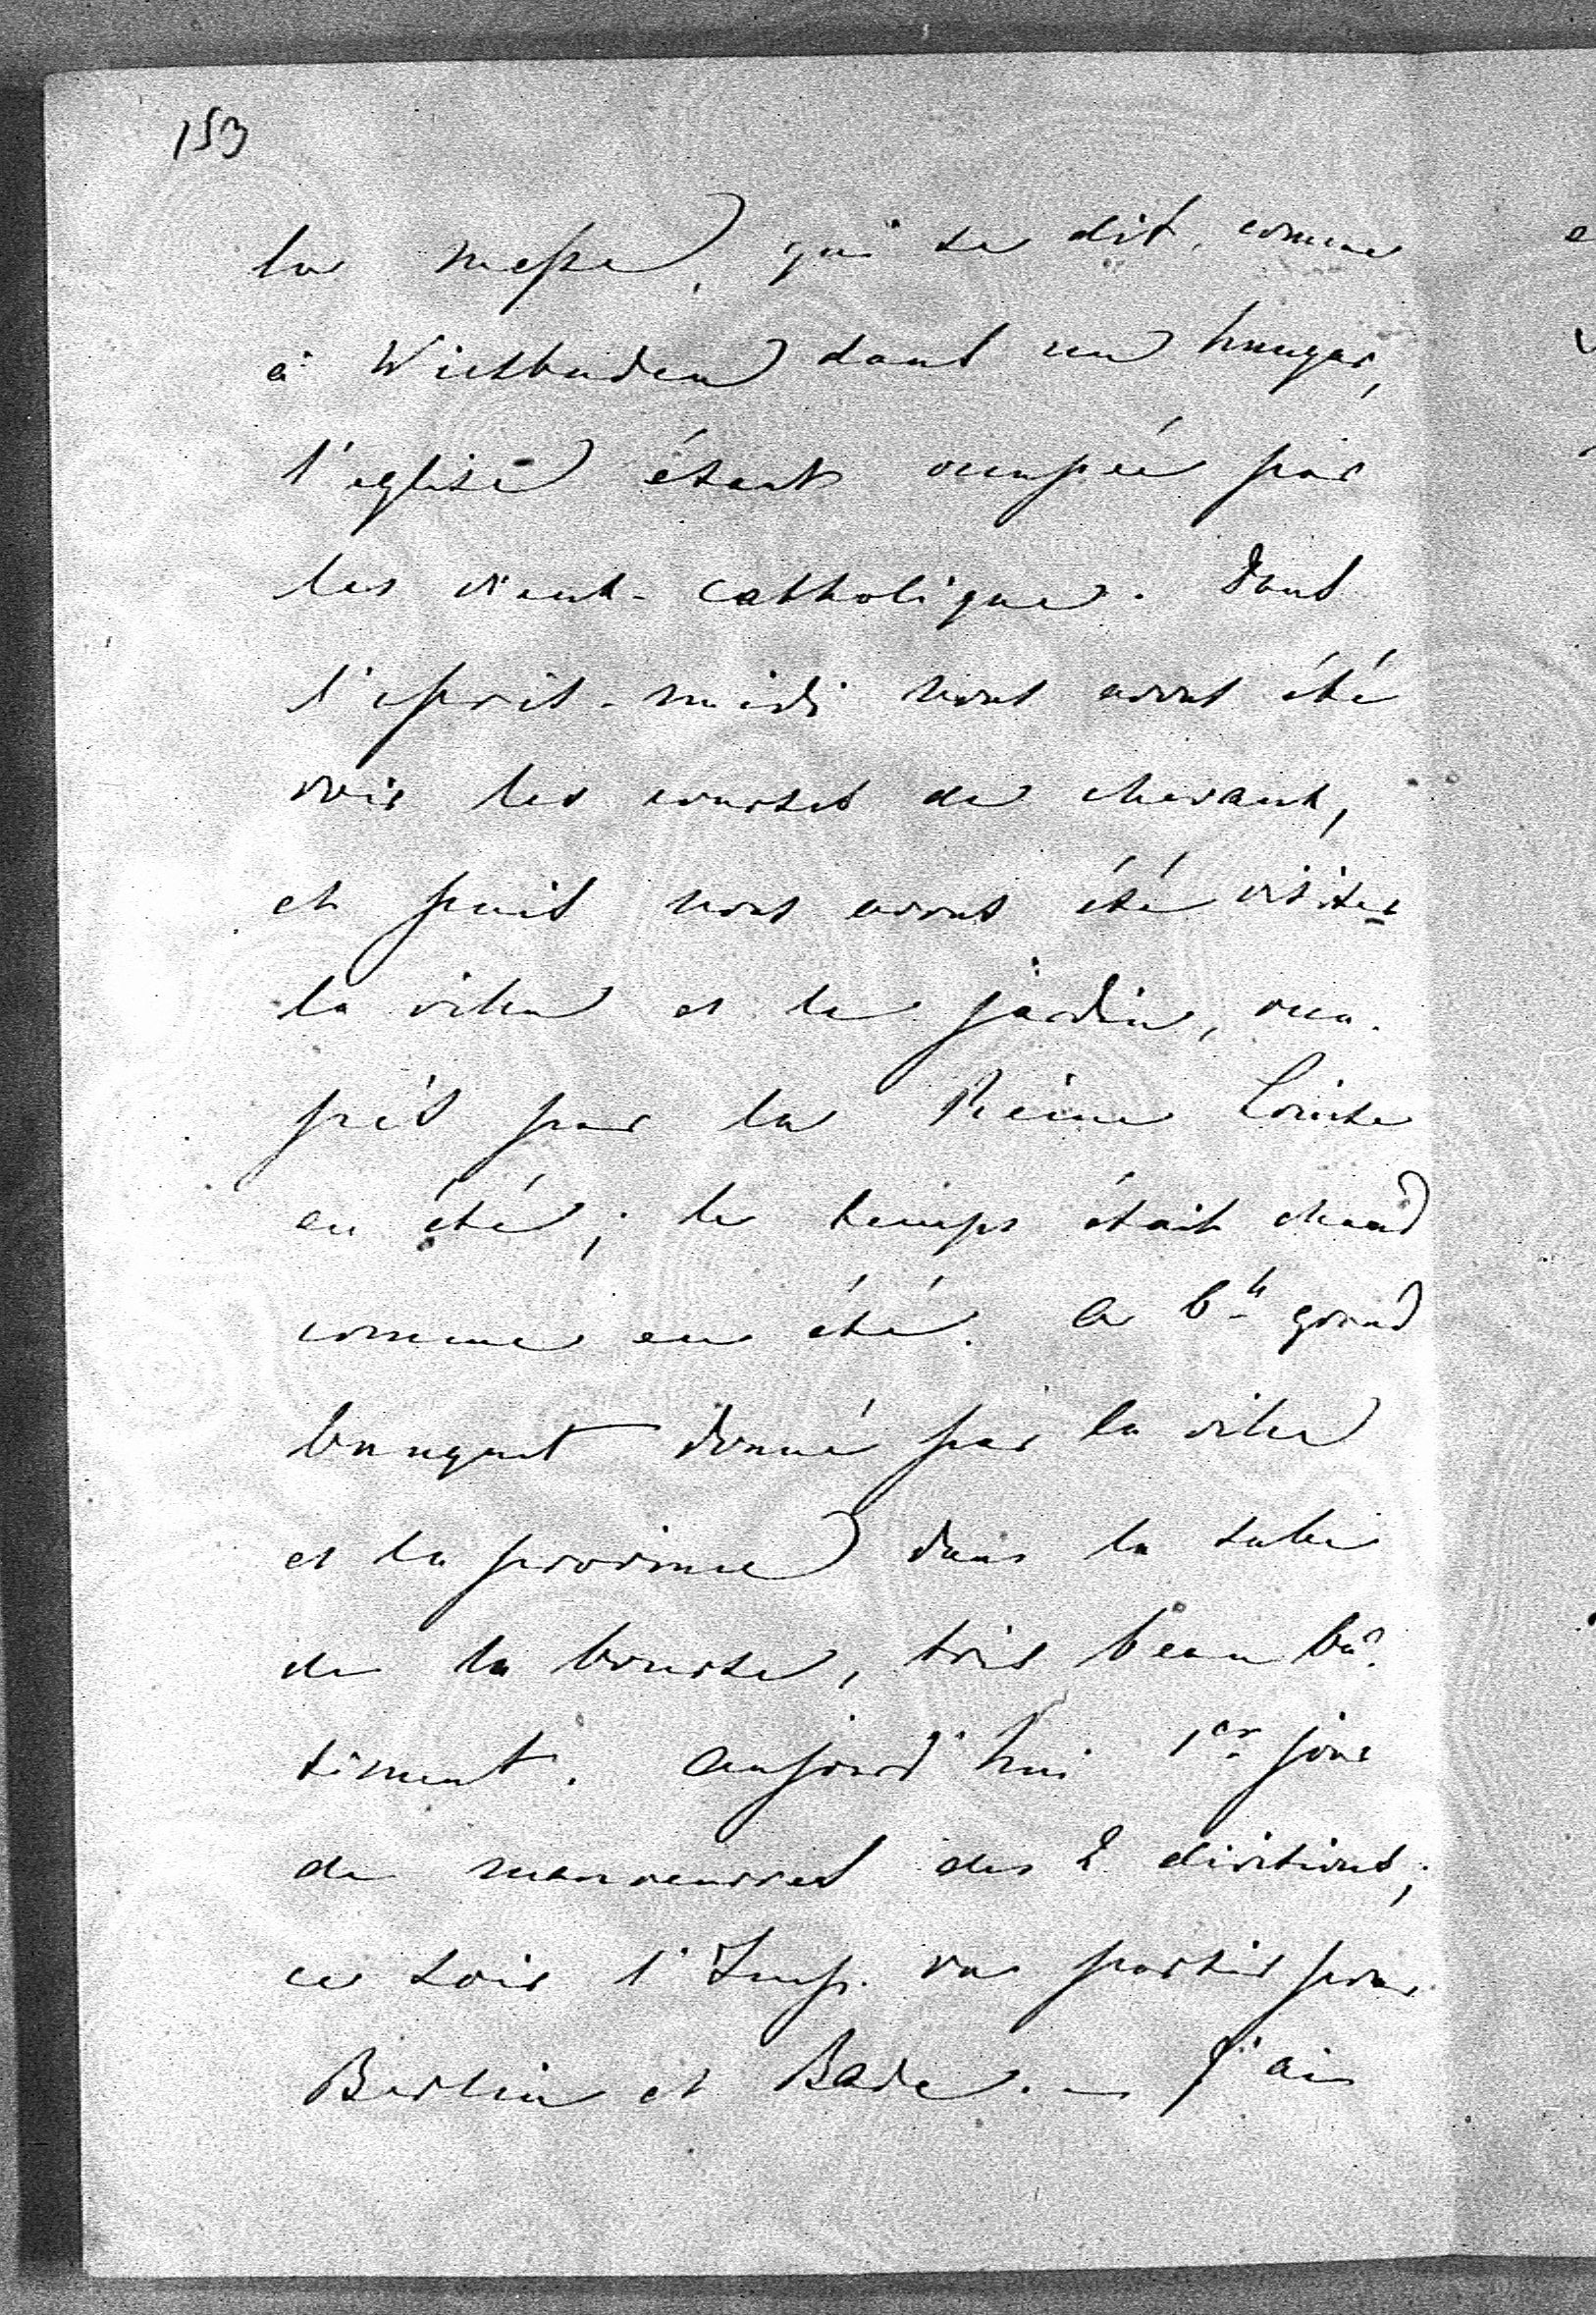 153
la messe, qui se dit, comme
à Wiesbaden dans un hangar,
l'église étant occupée par
les vieux-catholiques. Dans
l'après-midi nous avons été
voir les courses de chevaux,
et puis nous avons été visiter
la villa et le jardin, occu-
pés par la Reine Louise
en été; le temps était chaud
comme en été. A 6h grand
banquet donné par la ville
et la province dans la salle
de la bourse, très beau bâ-
timent. Aujourd'hui 1er jour
de manoeuvres des 2 divisions;
ce soir l'Imp. va partir pour
Berlin et Bade. — J'ai